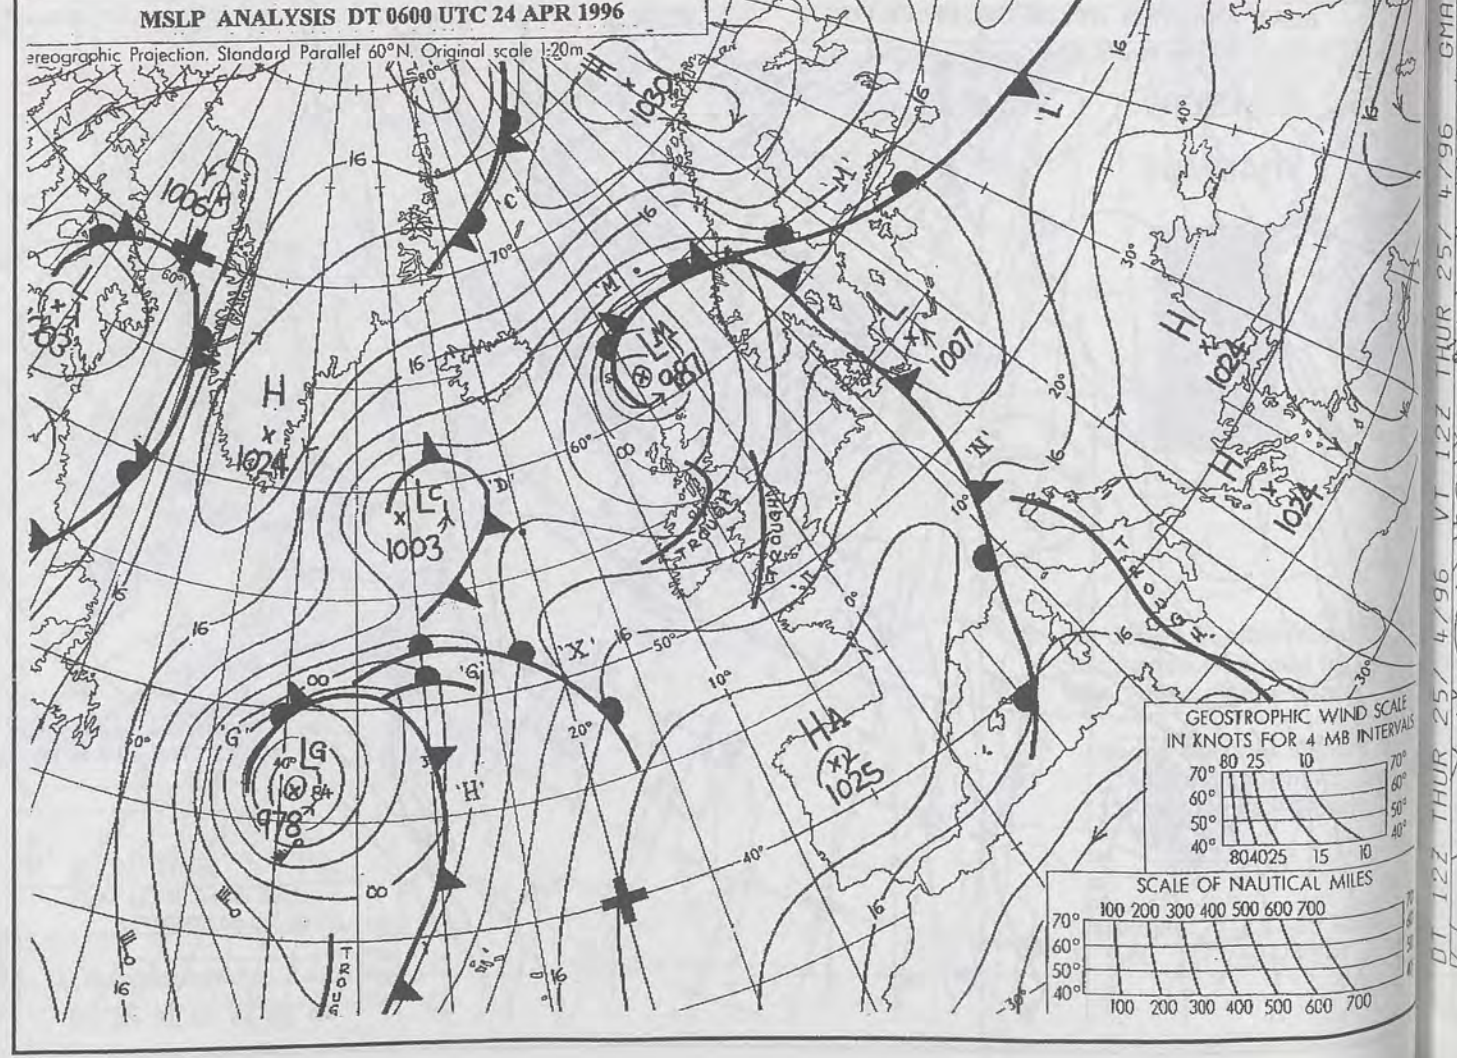 MSLP ANALYSIS DT 0600 UTC 24 APR 1996
ereographic Projection. Standard Parallel 60°N. Original scale 1:20m
80°
H
1030
16
16
16
'L'
40°
L
1006
16
'M'
'C'
16
70°
60°
30°
'M'
L
1007
H
1024
LM
987
16
H
1024
20°
60°
00
'N'
16
10°
H
1024
LC
1003
'D'
TROUGH
TROUGH
TROUGH
0°
16
16
50°
16
'X'
10°
16
30°
00
'G'
'G'
20°
50°
LG
40°
978
'H'
HA
1025
40°
00
16
TROUG
16
16
30°
GEOSTROPHIC WIND SCALE
IN KNOTS FOR 4 MB INTERVALS
80 25 10
70° 70°
60° 60°
50° 50°
40° 40°
80 40 25 15 10
SCALE OF NAUTICAL MILES
100 200 300 400 500 600 700
70°
60°
50°
40°
100 200 300 400 500 600 700
DT 12Z THUR 25/ 4/96 VT 12Z THUR 25/ 4/96 GMA